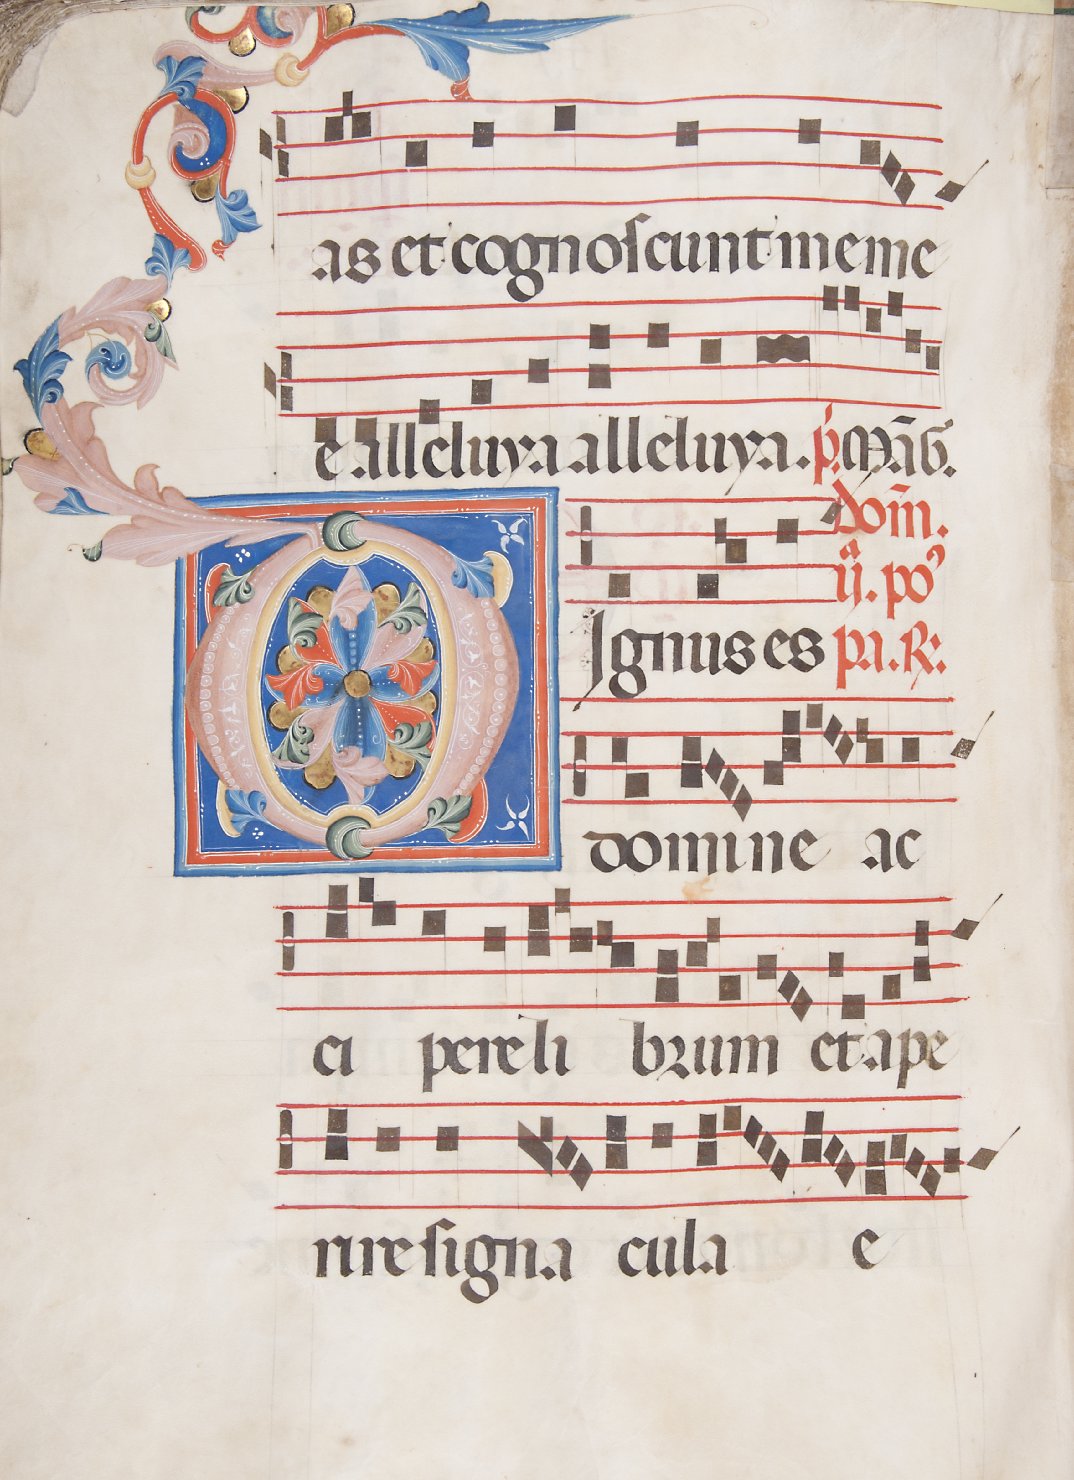 as et cognoscunt me me
e alleluya alleluya. p̱. Mag̃.
Dom̃.
ij. po⁹
DIgnus es pa. R.
domine ac
ci pere li brum et ape
rire signa cula e